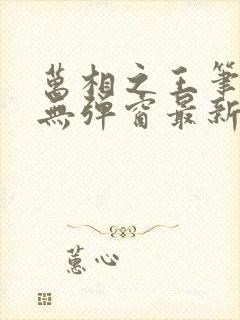 萬相之王筆
無彈窗最新
蕙心